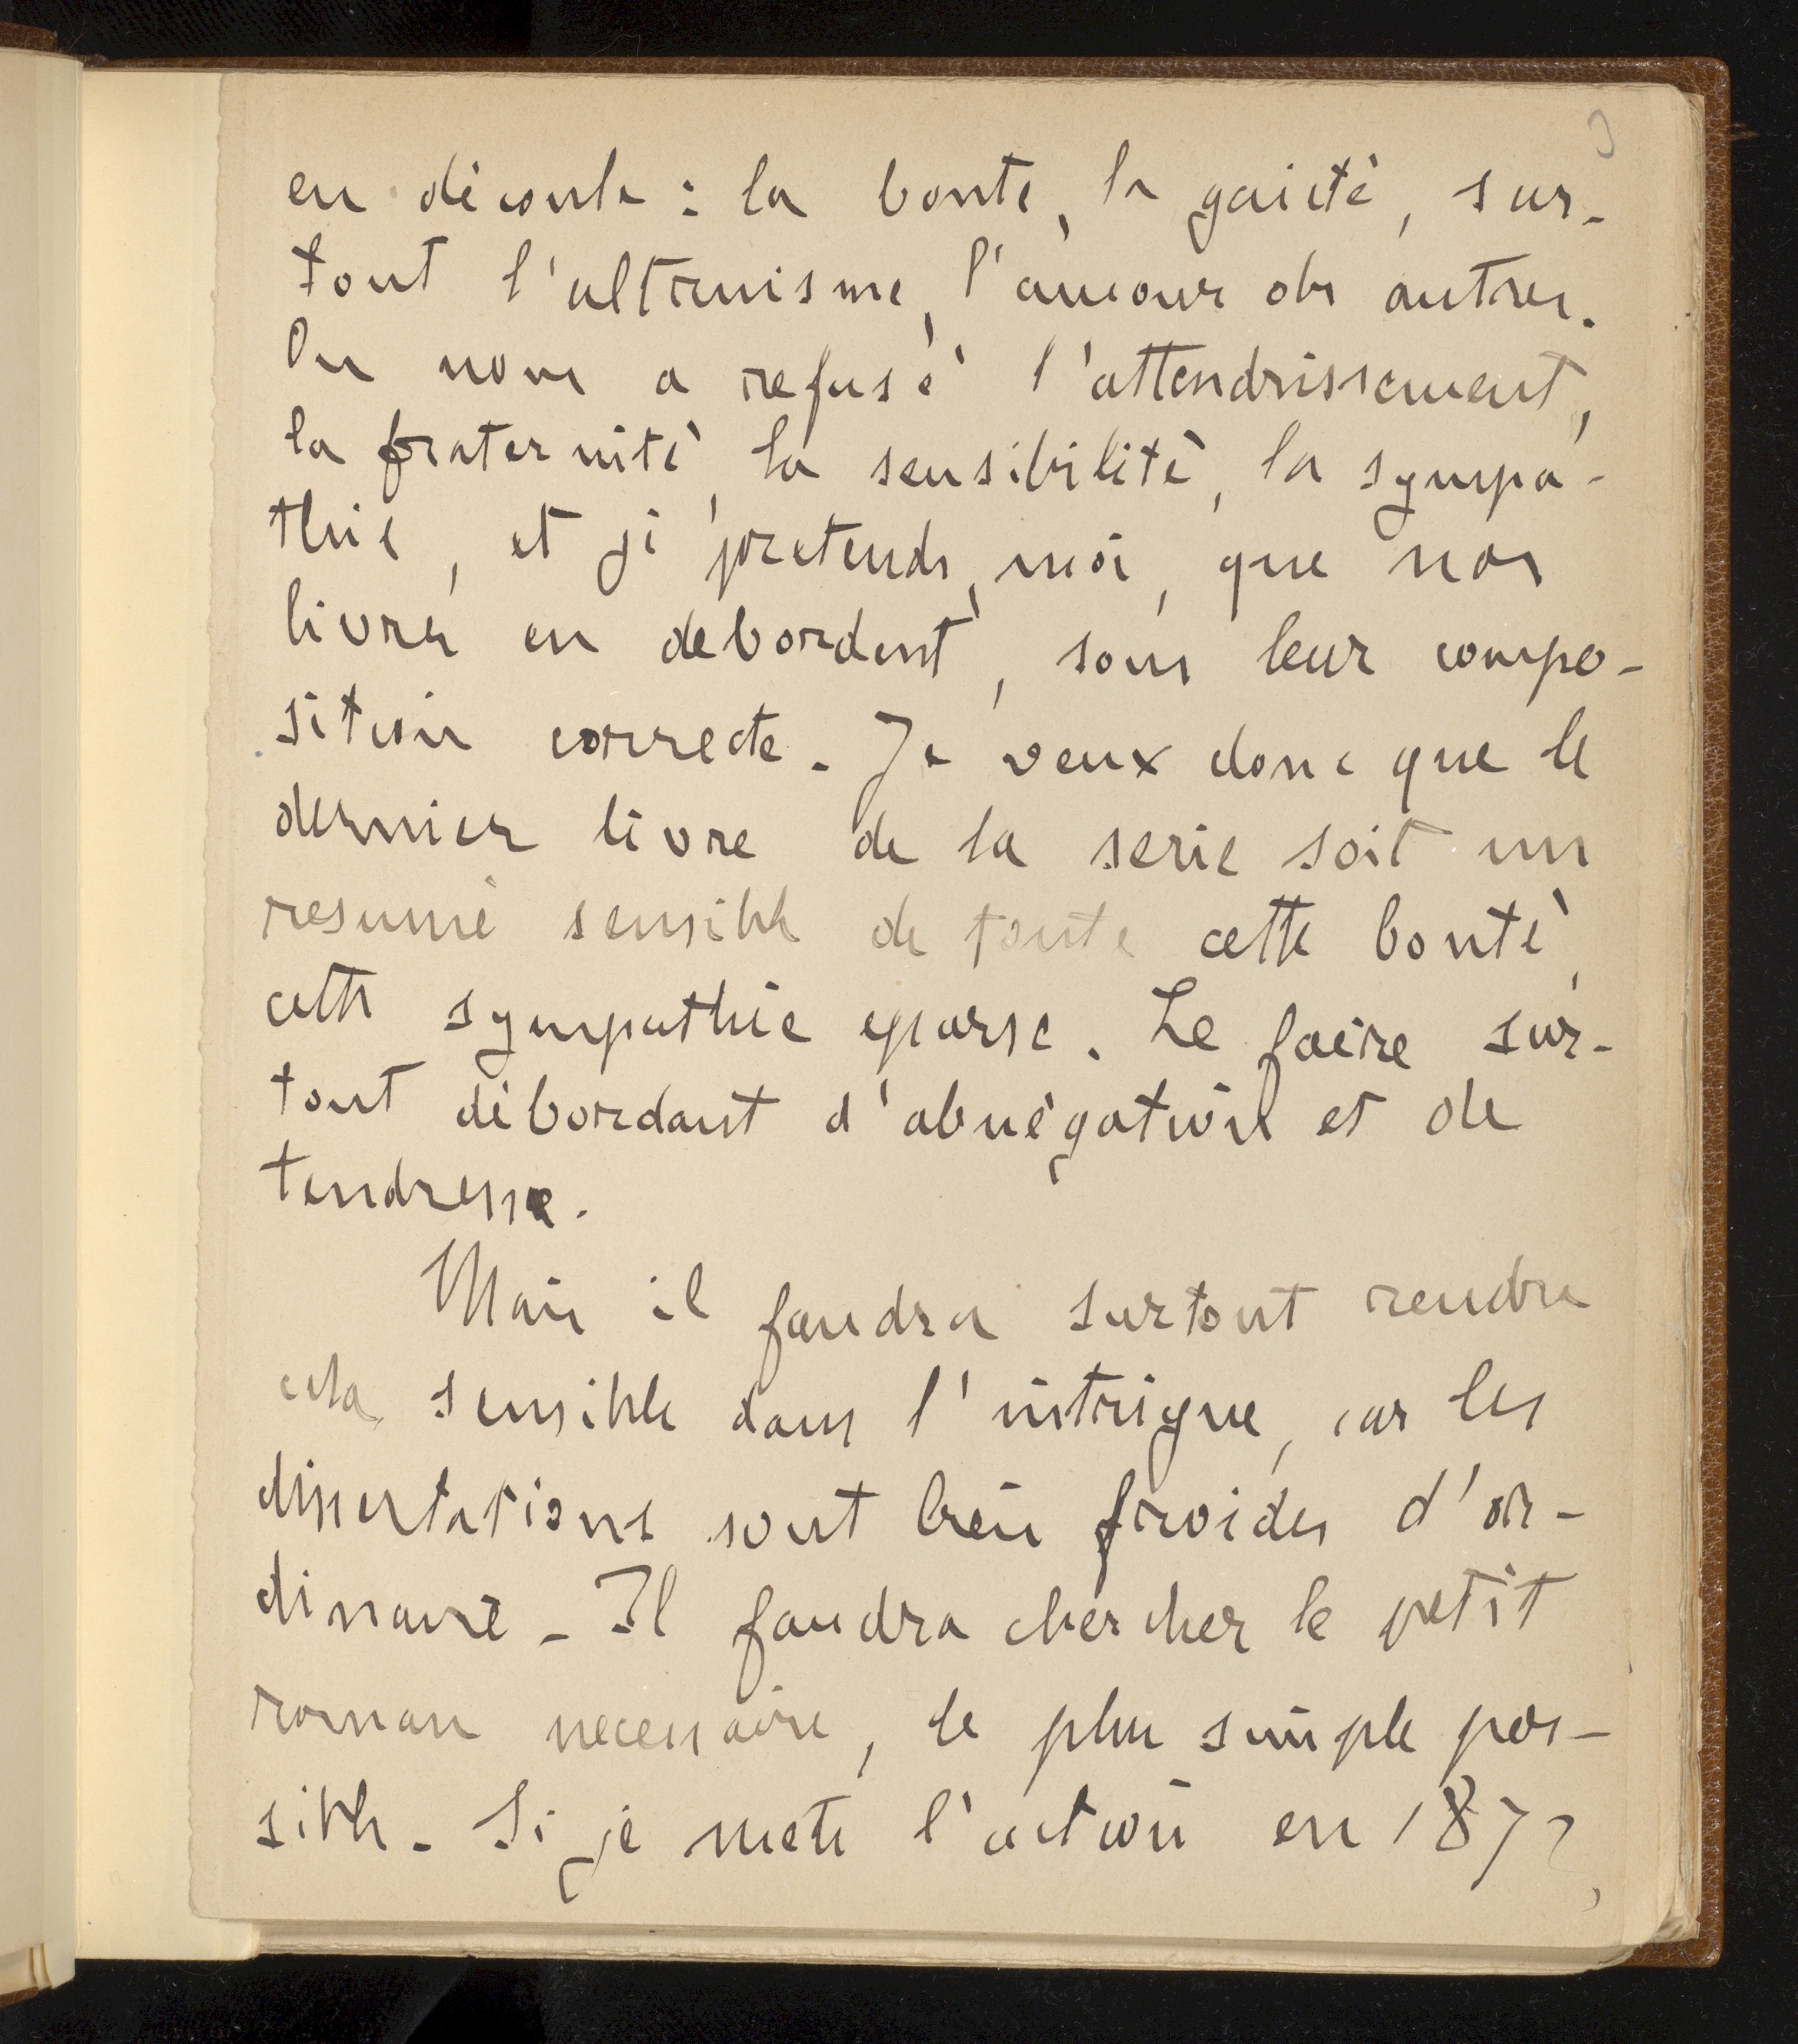 3
en découle : la bonté, la gaieté, sur-
tout l'altruisme, l'amour des autres.
On nous a refusé l'attendrissement,
la fraternité, la sensibilité, la sympa-
thie, et je prétends, moi, que nos
livres en débordent, sous leur compo-
sition correcte. Je veux donc que le
dernier livre de la série soit un
résumé sensible de toute cette bonté,
cette sympathie éparse. Le faire sur-
tout débordant d'abnégation et de
tendresse.
Mais il faudra surtout rendre
cela sensible dans l'intrigue, car les
dissertations sont bien froides d'or-
dinaire - Il faudra chercher le petit
roman nécessaire, le plus simple pos-
sible. Si je mets l'action en 1872,